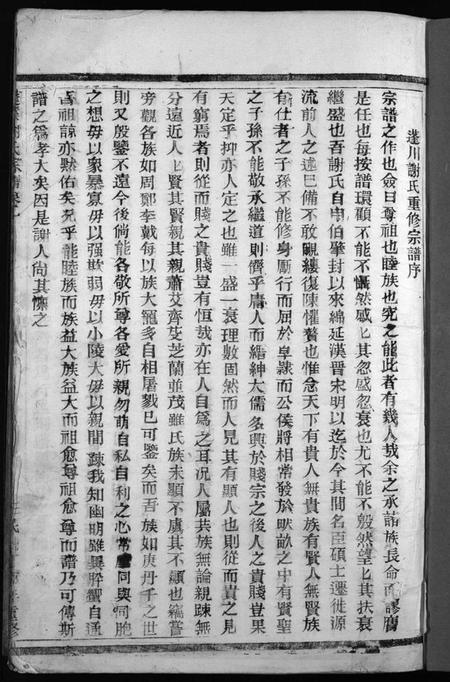 蓬川謝氏重修宗譜序
宗譜之作也僉曰尊祖也睦族也究之能此者有幾人哉余之承諸族長命而謬膺
是任也每按譜環顧不能不慨然感七其忽盛忽衰也尤不能不殷然望七其扶衰
繼盛也吾謝氏自申伯肇封以來綿延漢晉宋明以迄於今其間名臣碩士遷徙源
流前人之述已備不敢覼縷復陳懼贅也惟念天下有貴人無貴族有賢人無賢族
有仕者之子孫不能修身勵行而屈於皁隸而公侯將相常發於畎畝之中有賢聖
之子孫不能敬承繼道則儕乎庸人而縉紳大儒多興於賤宗之後人之貴賤豈果
天定乎抑亦人定之也雖一盛一衰理數固然而人見其有顯人也則從而貴之見
有窮焉者則從而賤之貴賤豈有恒哉亦在人自爲之耳况人屬共族無論親踈無
分遠近人七賢其賢親其親蕭艾齊芟芝蘭並茂雖氏族未顯不慮其不顯也竊嘗
旁觀各族如周鄭李戴每以族大寵多自相屠戮已可鑒矣而吾族如庚丹千之世
則又殷鑒不遠今後倘能各敬所尊各愛所親勿萌自私自利之心常 同與同胞
之想毋以衆暴寡毋以强欺弱毋以小陵大毋以親間踈我知幽明雖異肸蠁自通
吾祖諒亦默佑矣况乎能睦族而族益大族益大而祖愈尊祖愈尊而譜乃可傳斯
譜之爲孝大矣因是謝人尙其懍之
蓬川謝氏宗譜卷